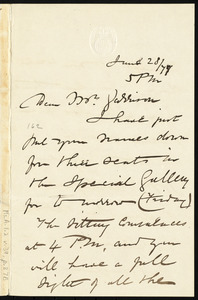 June 26/79
5 P.M.
Dear Mr. Garrison
I have just
put your names down
for three seats in
the Special Gallery
for to morrow (Friday)
The sitting commences
at 4 P.M. and you
will have a full
sight of all the